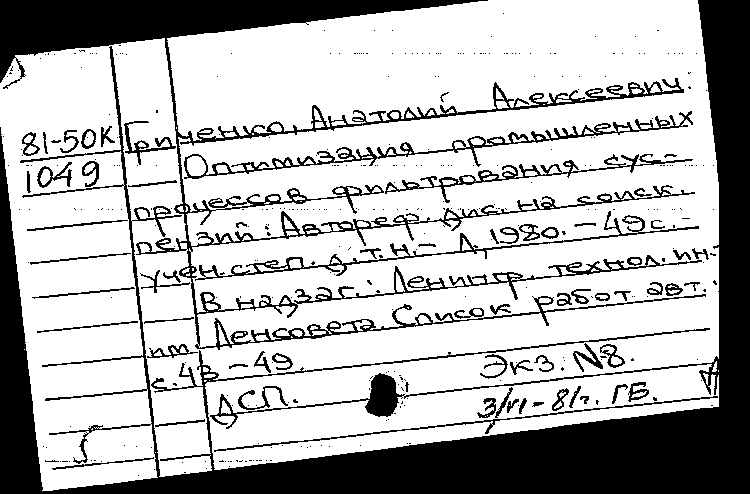 81-50К
1049
Гриченко, Анатолий Алексеевич.
Оптимизация промышленных
процессов фильтрования сус-
пензий: Автореф. дис. на соиск.
учен. степ. д.т.н. - Л, 1980. - 49 с. -
В надзаг.: Ленингр. технол. ин-
т им. Ленсовета. Список работ авт.:
с. 43-49.
ДСП.
Экз. №8.
3/VI-81г. ГБ.